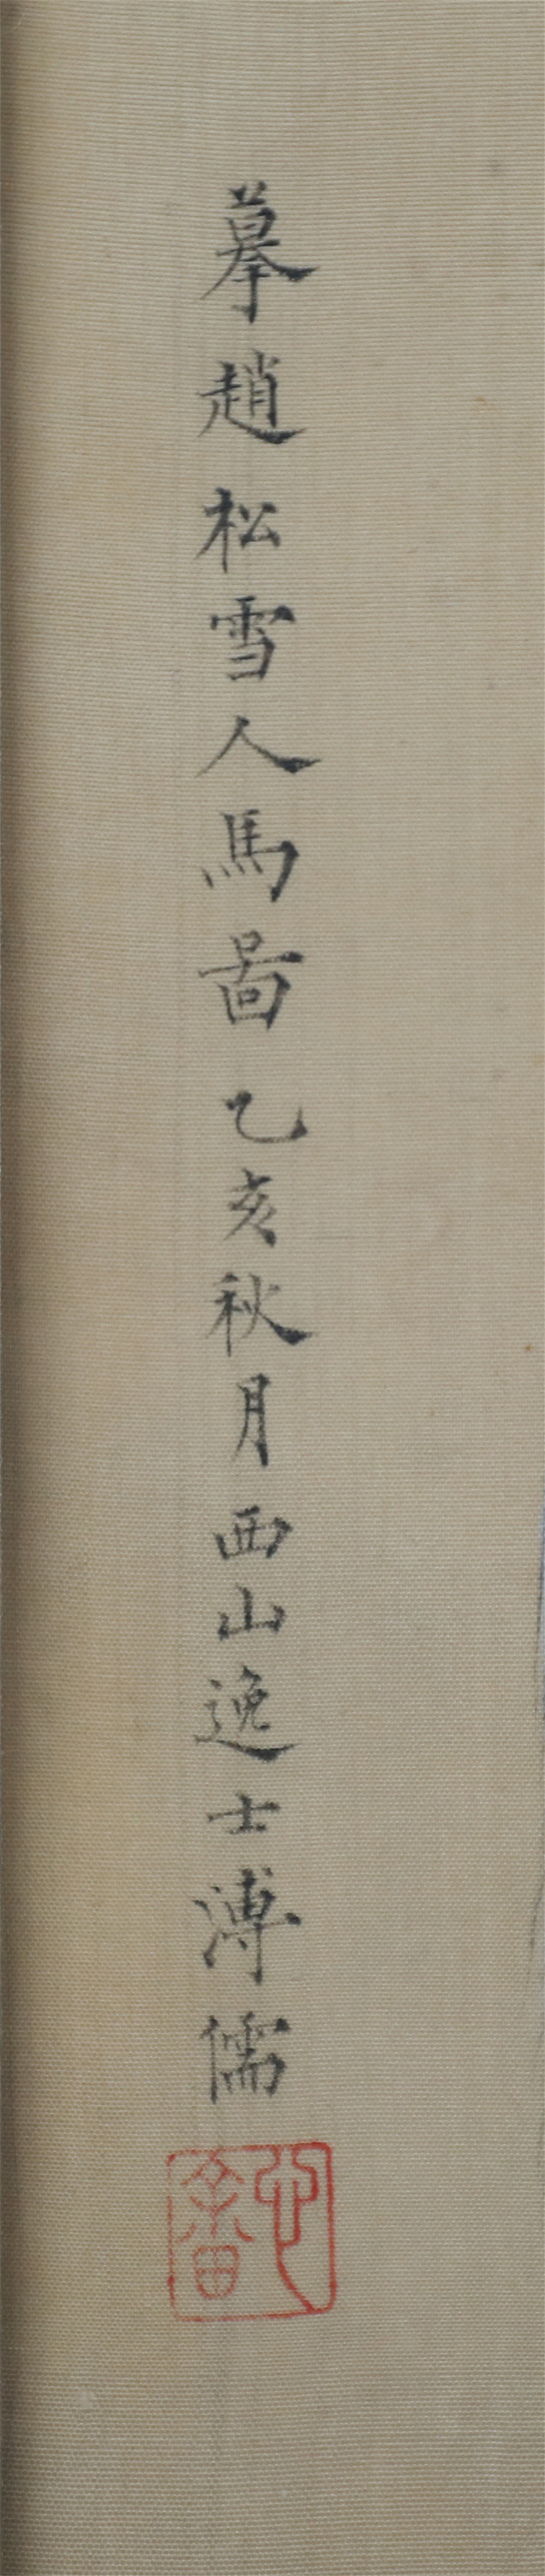 摹趙松雪人馬啚乙亥秋月西山逸士溥儒
心畬